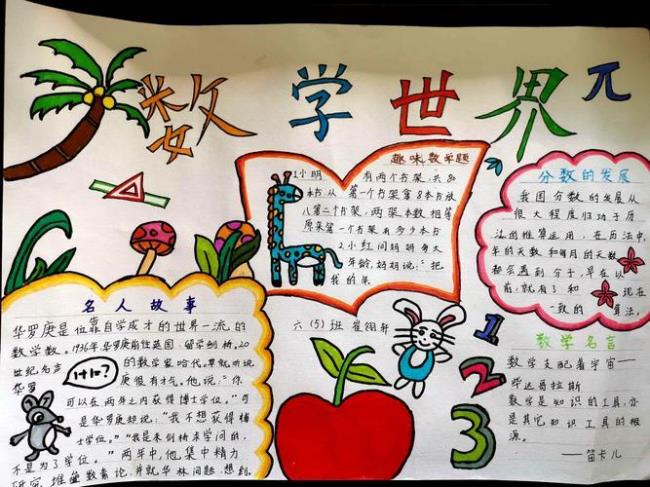 数学世界
π
趣味数学题
1小明有两个书架,共80
本书从第一个书架拿8本书放
入第二个书架,两架本数相等
原来第一个书架有多少本书
2小红问妈妈多大
年龄,妈妈说:"把
我的年
分数的发展
我国分数的发展从
很大程度归功于历
法的推算运用,在历法中,
年的天数和每月的天数
都会遇到分子,早在从
前,就有了和现在
一致的算法。
名人故事
华罗庚是位靠自学成才的世界一流的
数学家。1936年,华罗庚前往英国
留学剑桥。20
世纪声
的数学家哈代,早就听说
华罗庚很有才气。他说:"你
可以在两年之内获得博士学位。"可
是华罗庚却说:"我不想获得博
士学位。""我是来剑桥求学问的,
不是为了学位。"两年中,他集中精力
研究堆垒数素论,并就华林问题、
1+1=?
六(5)班 崔翎轩
1
2
3
数学名言
数学支配着宇宙——
毕达哥拉斯
数学是知识的工具,亦
是其它知识工具的根
源。
——笛卡儿